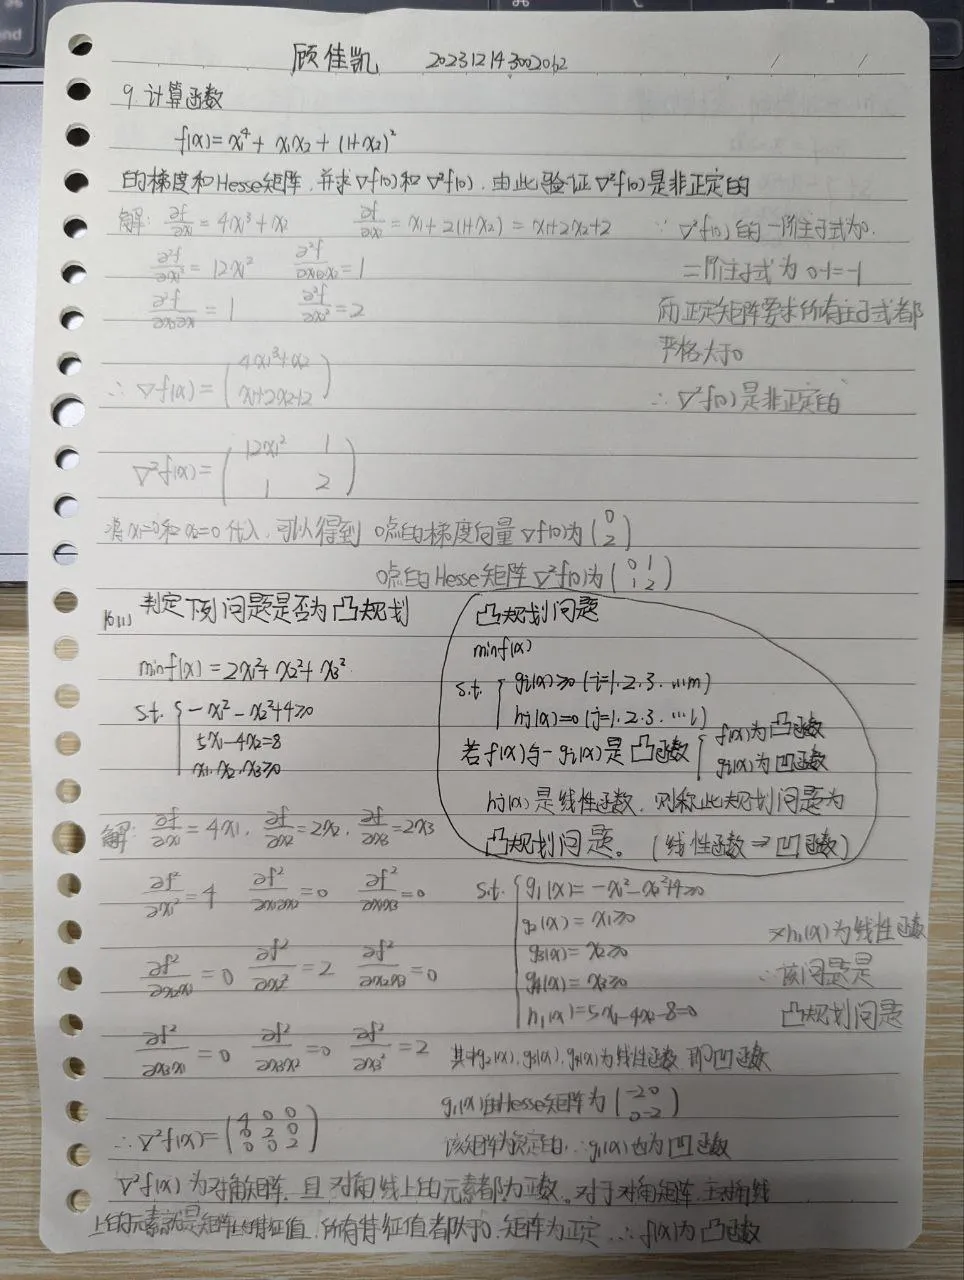 顾佳凯 202312143002062
9.计算函数
f(x)=x₁⁴+x₁x₂+(1+x₂)²
的梯度和Hesse矩阵,并求∇f(0)和∇²f(0),由此验证∇²f(0)是非正定的
解: ∂f/∂x₁=4x₁³+x₂ ∂f/∂x₂=x₁+2(1+x₂)=x₁+2x₂+2
∂²f/∂x₁²=12x₁² ∂²f/∂x₁∂x₂=1
∂²f/∂x₂∂x₁=1 ∂²f/∂x₂²=2
∴∇f(x)=(4x₁³+x₂
x₁+2x₂+2)
∇²f(x)=(12x₁² 1
1 2)
将x₁=0和x₂=0代入,可以得到 0点的梯度向量∇f(0)为(0
2)
0点的Hesse矩阵∇²f(0)为(0 1
1 2)
∵∇²f(0)的一阶主子式为0.
二阶主子式为 0-1=-1
而正定矩阵要求所有主子式都
严格大于0
∴∇²f(0)是非正定的
16(1) 判定下列问题是否为凸规划
minf(x)=2x₁²+x₂²+x₃²
s.t. {-x₁²-x₂²+4≥0
5x₁-4x₂=8
x₁,x₂,x₃≥0
凸规划问题
minf(x)
s.t. {gᵢ(x)≥0 (i=1.2.3...m)
hⱼ(x)=0 (j=1.2.3...l)
若f(x)与-gᵢ(x)是凸函数 {f(x)为凸函数
gᵢ(x)为凹函数
hⱼ(x)是线性函数,则称此规划问题为
凸规划问题。(线性函数⇒凹函数)
解: ∂f/∂x₁=4x₁, ∂f/∂x₂=2x₂, ∂f/∂x₃=2x₃
∂f²/∂x₁²=4 ∂f²/∂x₁∂x₂=0 ∂f²/∂x₁x₃=0
∂f²/∂x₂x₁=0 ∂f²/∂x₂²=2 ∂f²/∂x₂x₃=0
∂f²/∂x₃x₁=0 ∂f²/∂x₃x₂=0 ∂f²/∂x₃²=2
∴∇²f(x)=(4 0 0
0 2 0
0 0 2)
s.t. {g₁(x)=-x₁²-x₂²+4≥0
g₂(x)=x₁≥0
g₃(x)=x₂≥0
g₄(x)=x₃≥0
h₁(x)=5x₁-4x₂-8=0
又h₁(x)为线性函数
∴该问题是
凸规划问题
其中g₂(x),g₃(x),g₄(x)为线性函数 即凹函数
g₁(x)的Hesse矩阵为(-2 0
0 -2)
该矩阵为负定的,∴g₁(x)也为凹函数
∇²f(x)为对角矩阵,且对角线上的元素都为正数。对于对角矩阵,主对角线
上的元素就是矩阵的特征值,所有特征值都大于0,矩阵为正定 ∴f(x)为凸函数